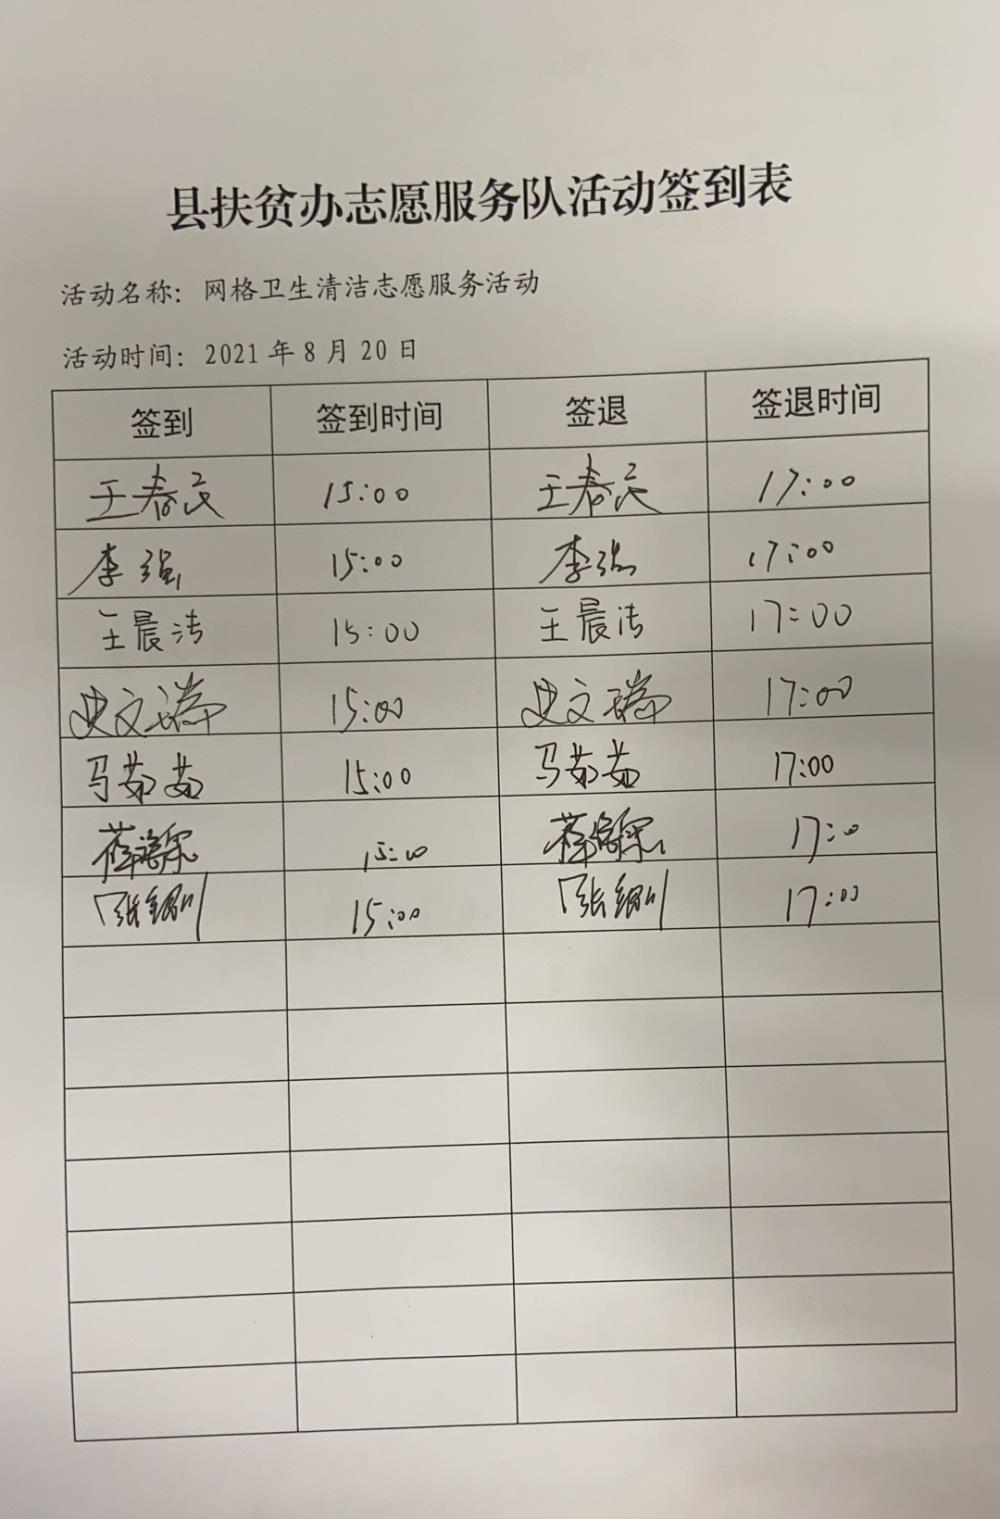 县扶贫办志愿服务队活动签到表
活动名称：网格卫生清洁志愿服务活动
活动时间：2021年8月20日
签到 签到时间 签退 签退时间
王春民 15:00 王春民 17:00
李强 15:00 李强 17:00
王晨洁 15:00 王晨洁 17:00
史文瑞 15:00 史文瑞 17:00
马茹茹 15:00 马茹茹 17:00
薛 15:00 薛 17:00
张钢 15:00 张钢 17:00